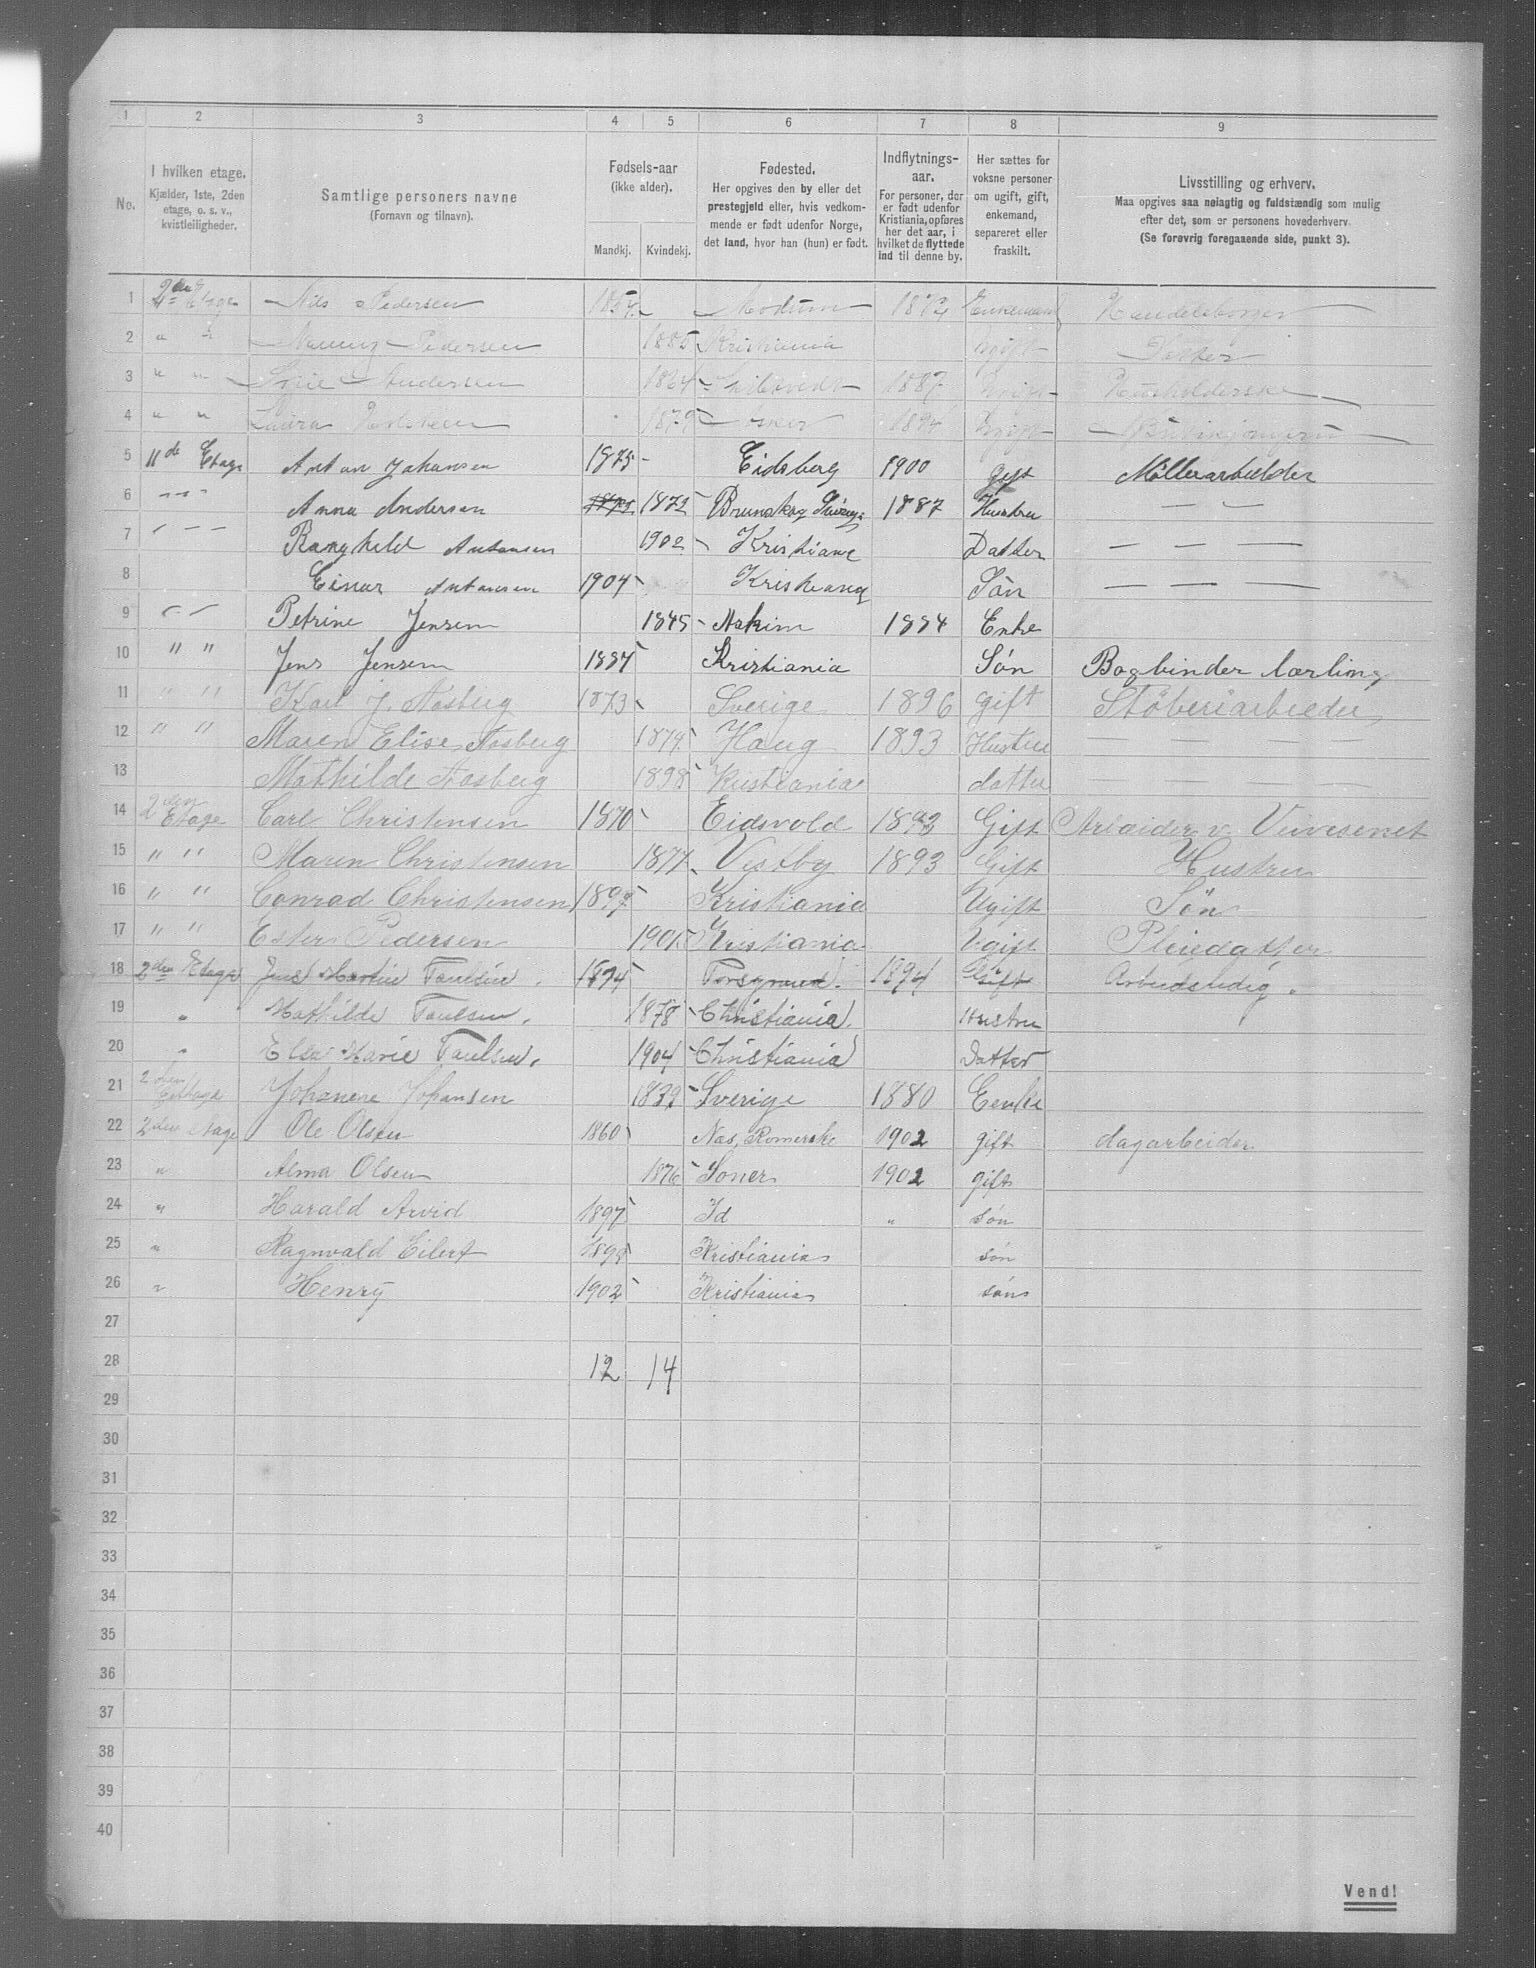 1 2 3 4 5 6 7 8 9
No.
I hvilken etage.
Kjælder, 1ste, 2den
etage, o. s. v.,
kvistleiligheder.
Samtlige personers navne
(Fornavn og tilnavn).
Fødsels-aar
(ikke alder).
Mandkj. Kvindekj.
Fødested.
Her opgives den by eller det
prestegjeld eller, hvis vedkom-
mende er født udenfor Norge,
det land, hvor han (hun) er født.
Indflytnings-
aar.
For personer, der
er født udenfor
Kristiania, opføres
her det aar, i
hvilket de flyttede
ind til denne by.
Her sættes for
voksne personer
om ugift, gift,
enkemand,
separeret eller
fraskilt.
Livsstilling og erhverv.
Maa opgives saa nøiagtig og fuldstændig som mulig
efter det, som er personens hovederhverv.
(Se forøvrig foregaaende side, punkt 3).
1 Etage Nils Pedersen Modum Enkemand Handelsborger
2 " " Pedersen 1885 Kristiania Ugift Datter
3 " " Andersen 1864 1887 Ugift Husholderske
4 " " Laura Holsteen 1879 1894 Ugift
5 11de Etage Anton Johansen 1875 Eidsberg 1900 gift Møllerarbeider
6 " " " Anna Andersen 1872 Brunskog 1887 Hustru — —
7 Ranghild Antonsen 1902 Kristiania Datter — — —
8 Einar Antonsen 1904 Kristiania Søn — — —
9 Petrine Jensen 1845 1884 Enke
10 " " Jens Jensen 1887 Kristiania Søn Bogbinder lærling
11 " " Karl J. Aasberg 1873 Sverige 1896 gift Støberiarbeider
12 " " Maren Elise Aasberg 1874 Haug 1893 Hustru — — —
13 Mathilde Aasberg 1898 Kristiania datter — — —
14 2den Etage Carl Christensen 1870 Eidsvold 1893 Gift Arbeider v. Veivesenet
15 " " Maren Christensen 1871 Vestby 1893 Gift Hustru
16 " " Conrad Christensen 1897 Kristiania Ugift Søn
17 " " Ester Pedersen 1901 Kristiania Ugift Pleiedatter
18 2den Etage Jens Martin Paulsen. 1874 1894 Gift Arbeidsledig.
19 " Mathilde Paulsen. 1878 Christiania. Hustru
20 " Elsa Marie Paulsen. 1904 Christiania Datter
21 2 Johanne Johansen 1839 Sverige 1880 Eenke
22 2den Etage Ole Olsen 1860 Nas, Romerike 1902 gift dagarbeider
23 " Alma Olsen 1876 Soner 1902 gift
24 " Harald Arvid 1897 Id " søn
25 " Ragnvald Eilert 1898 Kristiania søn
26 " Henry 1902 Kristiania søn
27
28 12 14
29
30
31
32
33
34
35
36
37
38
39
40
Vend!